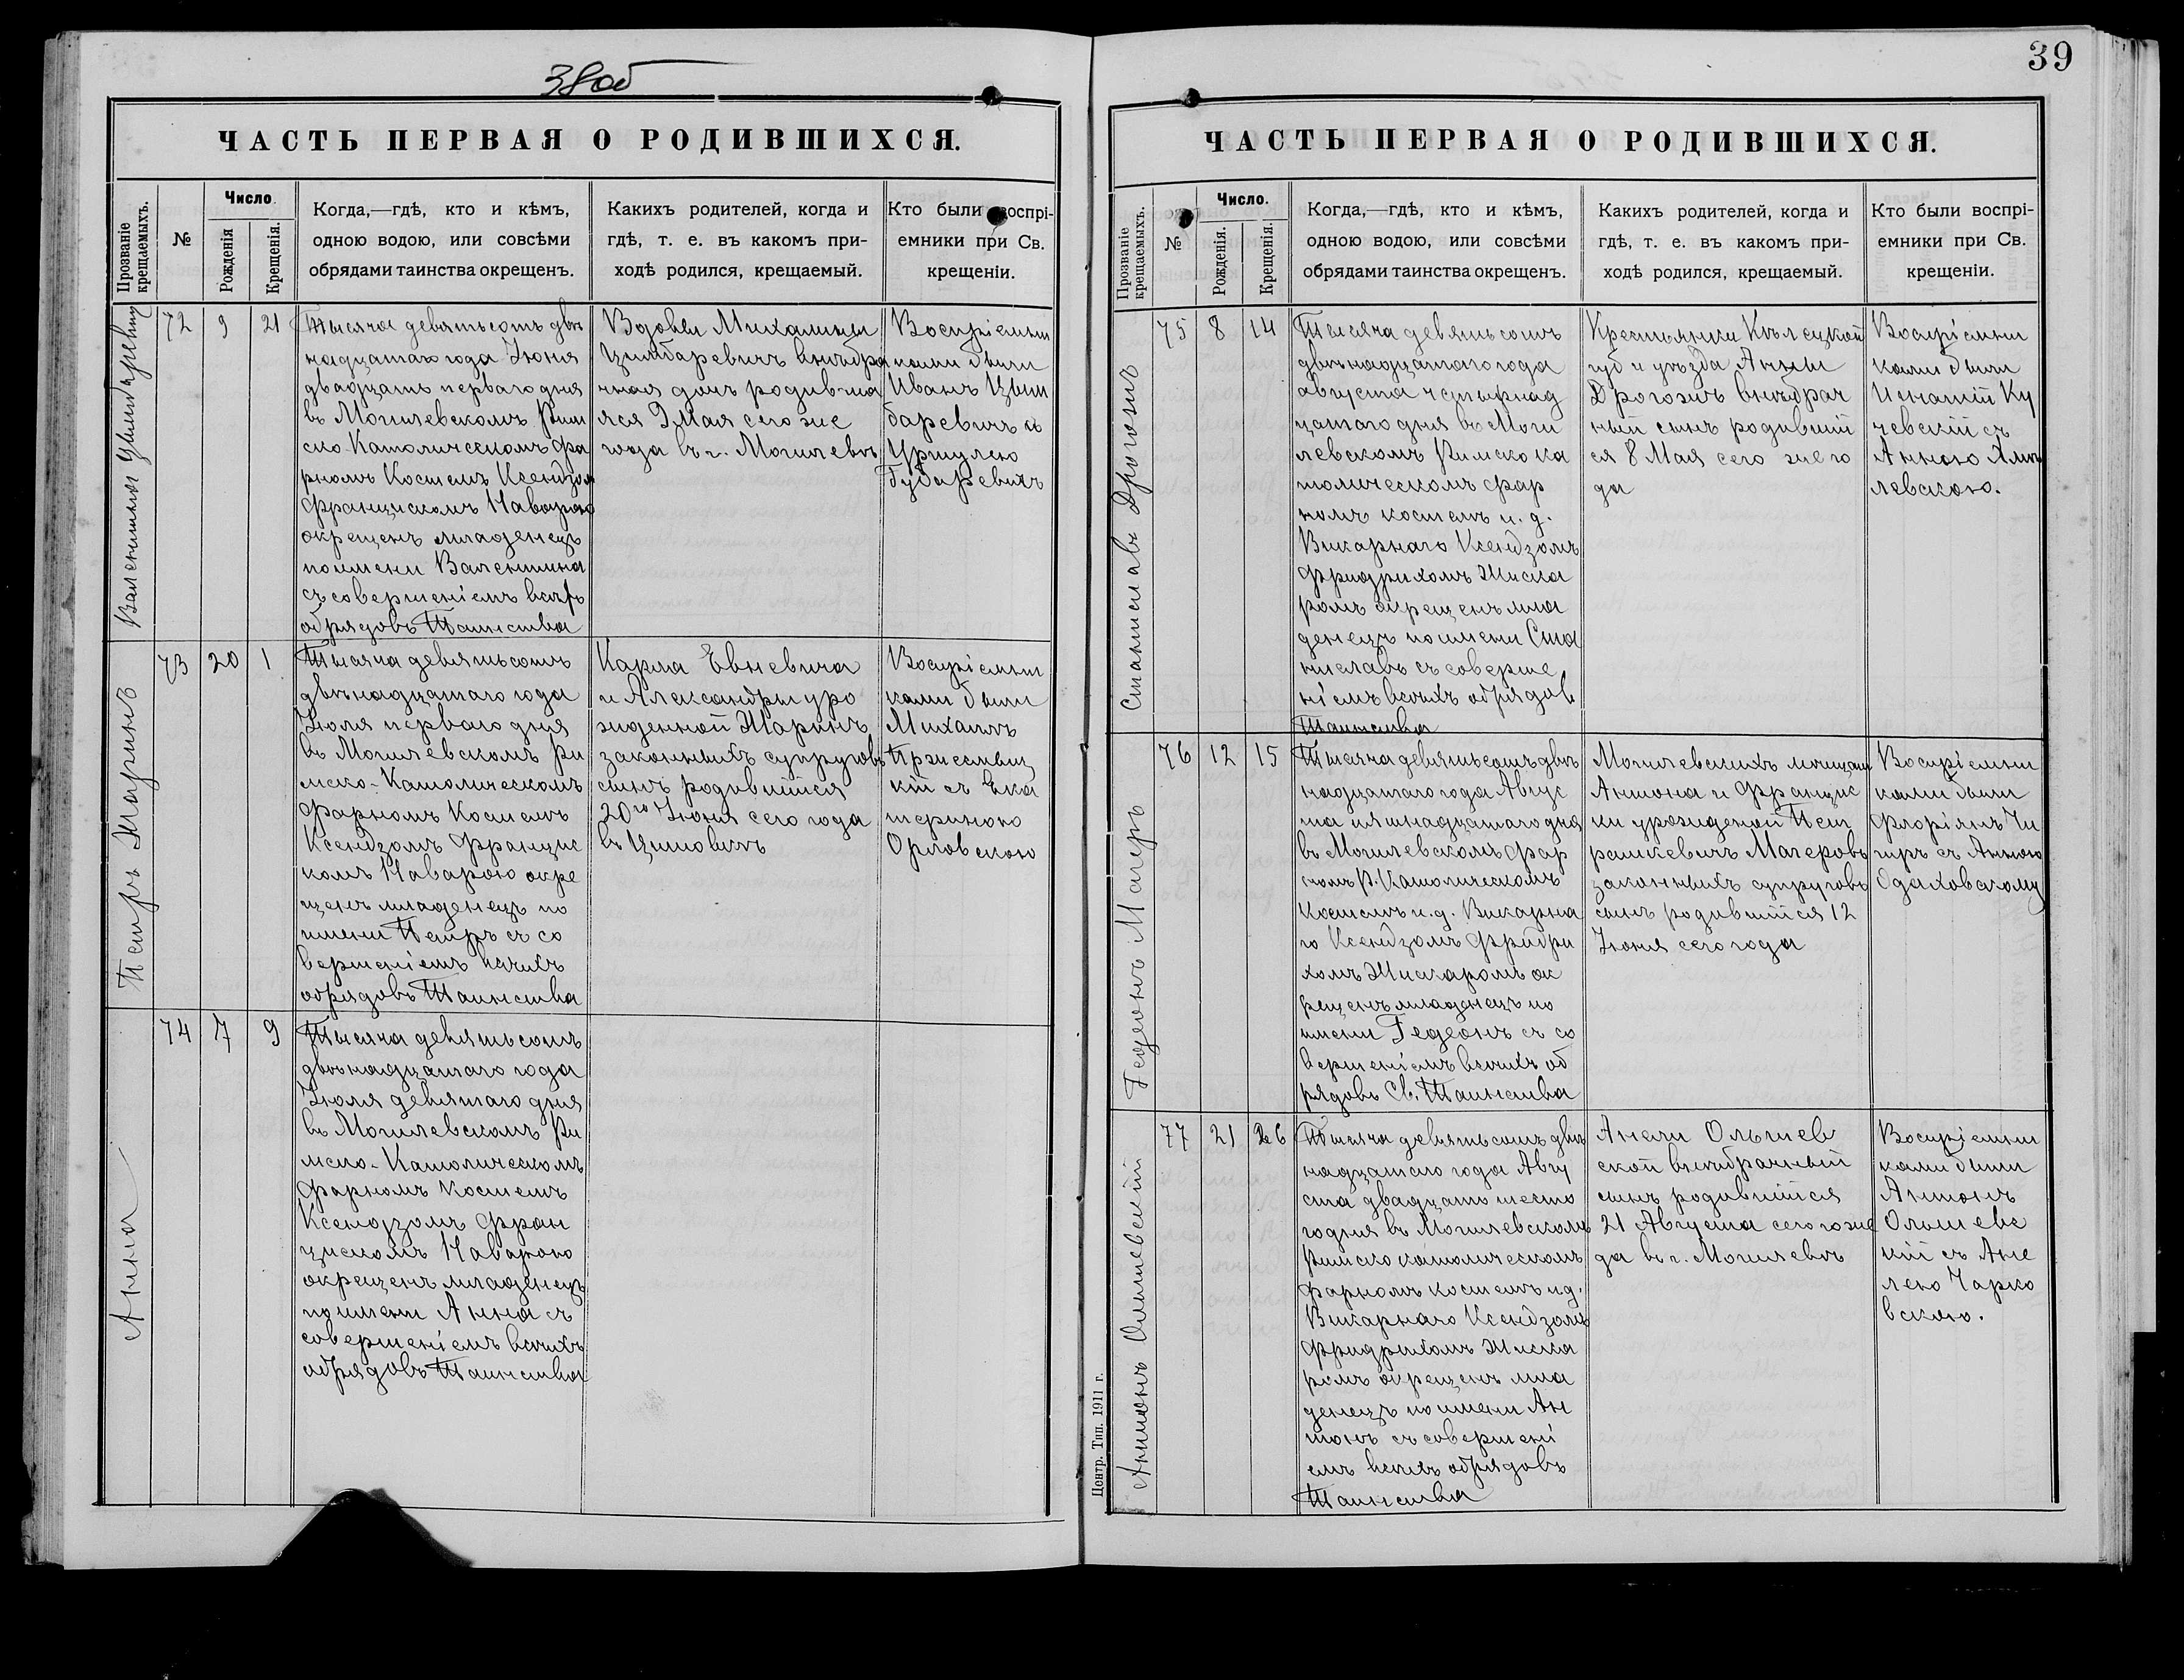 38об
ЧАСТЬ ПЕРВАЯ О РОДИВШИХСЯ.
Прозваніе крещаемыхъ.
№
Число.
Рожденія
Крещенія.
Когда,—гдѣ, кто и кѣмъ,
одною водою, или совсѣми
обрядами таинства окрещенъ.
Какихъ родителей, когда и
гдѣ, т. е. въ какомъ при-
ходѣ родился, крещаемый.
Кто были воспрі-
емники при Св.
крещеніи.
Валентина
72
9
21
Тысяча девятьсотъ двѣ
надцатаго года Іюня
двадцать перваго дня
въ Могилевскомъ Рим
ско-Католическомъ фа
рномъ Костелѣ Ксендзом
Францискомъ Наварою
окрещенъ младенецъ
по имени Валентина
съ совершеніемъ всѣх
обрядовъ Таинства
Вдовы Михалины
Цимбаревичъ внѣбра
чная дочь родивша
яся 9 Мая сего же
года въ г. Могилевѣ
Воспріемни
ками были
Иванъ Цым
баревичъ и
Уршулею
Губаревичъ
Петръ Маринъ
73
20
1
Тысяча девятьсотъ
двѣнадцатаго года
Іюля перваго дня
въ Могилевскомъ Ри
мско-Католическомъ
фарномъ Костелѣ
Ксендзомъ Францис
комъ Наварою окре
щенъ младенецъ по
имени Петръ съ со
вершеніемъ всѣхъ
обрядовъ Таинства
Карла Евневича
и Александры уро
жденной Маринъ
законныхъ супруговъ
сынъ родившійся
20го Іюня сего года
въ
Воспріемни
ками были
Михаилъ
Пржесмыц
кій съ Ека
териною
Орловскою
Анна
74
7
9
Тысяча девятьсотъ
двѣнадцатаго года
Іюля девятаго дня
въ Могилевскомъ Ри
мско-Католическомъ
фарномъ Костелѣ
Ксендзомъ Фран
цискомъ Наварою
окрещенъ младенецъ
по имени Анна съ
совершеніемъ всѣхъ
обрядовъ Таинства
39
ЧАСТЬ ПЕРВАЯ О РОДИВШИХСЯ.
Прозваніе крещаемыхъ.
№
Число.
Рожденія.
Крещенія.
Когда,—гдѣ, кто и кѣмъ,
одною водою, или совсѣми
обрядами таинства окрещенъ.
Какихъ родителей, когда и
гдѣ, т. е. въ какомъ при-
ходѣ родился, крещаемый.
Кто были воспрі-
емники при Св.
крещеніи.
Станиславъ Дрогозъ
75
8
14
Тысяча девятьсотъ
двѣнадцатаго года
августа четырнад
цатаго дня въ Моги
левскомъ Римско ка
толическомъ фар
номъ костелѣ и. д.
Викарнаго Ксендзомъ
Фридрихомъ Жиска
ромъ окрещенъ мла
денецъ по имени Ста
ниславъ съ соверше
ніемъ всѣхъ обрядов
Таинства
Крестьянки Кѣлецкой
губ и уѣзда Анны
Дрогозъ внѣбрач
ный сынъ родивший
ся 8 Мая сего же го
да
Воспріемни
ками были
Игнатій Ку
чевскій съ
Анною
левскою.
Гедеонъ Магеръ
76
12
15
Тысяча девятьсотъ двѣ
надцатаго года Авгус
та пятнадцатаго дня
въ Могилевскомъ фар
номъ Р. Католическомъ
Костелѣ и. д. Викарна
го Ксендзомъ Фридри
хомъ Жискаромъ ок
рещенъ младенецъ по
имени Гедеонъ съ со
вершеніемъ всѣхъ об
рядовъ Св. Таинства
Могилевскихъ мещан
Антона и Францис
ки урожденой Пет
рашкевичъ Магеровъ
законныхъ супруговъ
сынъ родившійся 12
Іюня сего года
Воспріемни
ками были
Флоріянъ Чи
гиръ съ Анною
Антонъ Ольшевскій
77
21
26
Тысяча девятьсотъ двѣ
надцатаго года Авгу
ста двадцать шесто
го дня въ Могилевскомъ
Римско католическомъ
фарномъ костелѣ и д.
Викарнаго Ксендзомъ
Фридрихомъ Жиска
ромъ окрещенъ мла
денецъ по имени Ан
тонъ съ совершені
емъ всѣхъ обрядовъ
Таинства
Анели Ольшев
ской внѣбрачный
сынъ родившійся
21 Августа сего же
да въ г. Могилевѣ
Воспріемни
ками были
Антонъ
Ольшевс
кій съ Ане
лею Чарко
вскою.
Центр. Тип. 1911 г.